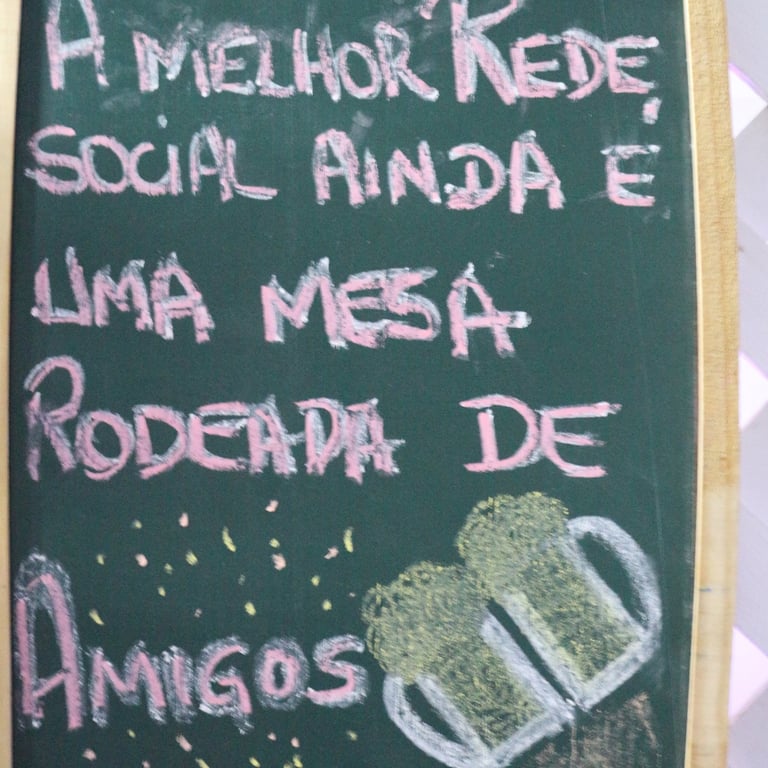 A MELHOR REDE
SOCIAL AINDA É
UMA MESA
RODEADA DE
AMIGOS